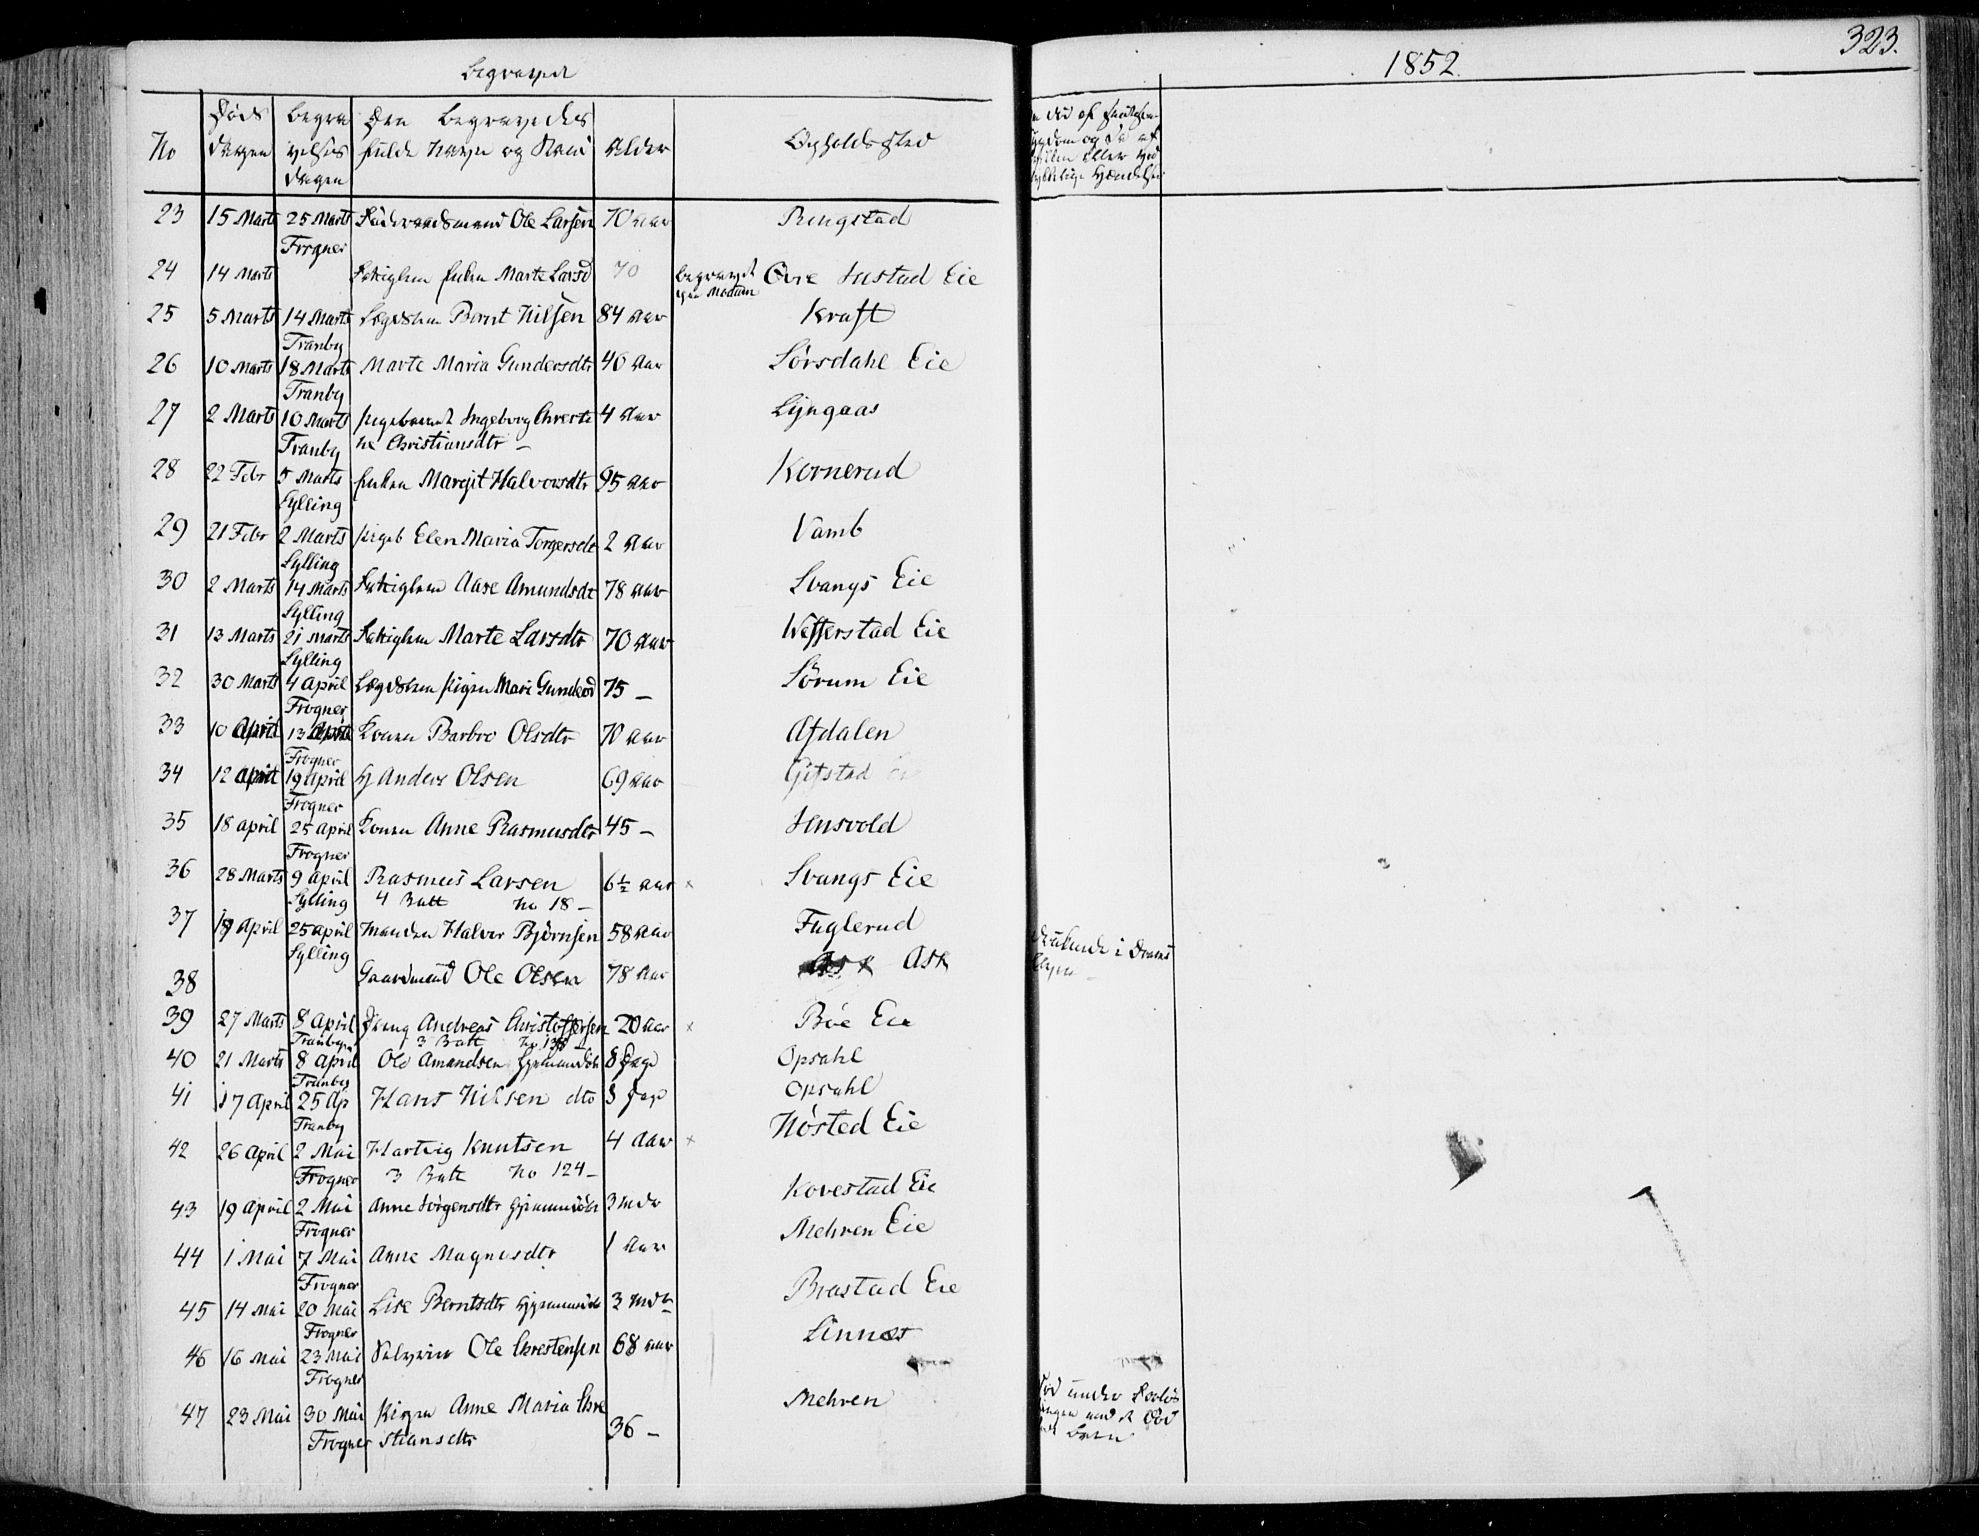 Begravede
1852.
323.
No
Døds Dagen
Begravelses Dagen
Den Begravedes fulde Navn og Stand
Alder
Opholdssted
23 15 Marts 25 Marts Ole Larsen 70 Aar Ringstad
Frogner
24 14 Marts Enken Marte Larsd 70 begravet paa Modum Øvre Justad Eie
25 5 Marts 14 Marts Lægdslem Bernt Nilsen 84 Aar Kraft
Tranby
26 10 Marts 18 Marts Marte Maria Gundersdtr 46 Aar Sørsdahl Eie
Tranby
27 2 Marts 10 Marts Pigebarnet Ingeborg Chresti 4 Aar Lyngaas
Tranby ne Christiansdtr –
28 22 Febr 5 Marts Enken Margit Halvorsdtr 95 Aar Kornerud
Sylling
29 21 Febr 2 Marts Pigeb Elen Maria Torgersdt 2 Aar Vamb
Sylling
30 2 Marts 14 Marts Fattiglem Aase Amundsdt 78 Aar Svangs Eie
Sylling
31 13 Marts 21 Marts Fattiglem Marte Larsdtr 70 Aar Wefferstad Eie
Sylling
32 30 Marts 4 April Lægdslem Pigen Mari Gundersd 75 – Sørum Eie
Frogner
33 10 April 13 April Konen Barbro Olsdtr 70 Aar Afdalen
Frogner
34 12 April 19 April Anders Olsen 69 Aar Gifstad
Frogner
35 18 april 25 April Konen Anne Rasmusdtr 45 – Jensvold
Frogner
36 28 Marts 9 April Rasmus Larsen 6½ Aar x Svangs Eie
Sylling 4 Batt No 18 –
37 19 April 25 april Manden Halvor Bjørnsen 58 Aar Fuglerud druknede i Drams
Sylling Elven –
38 Gaardmand Ole Olsen 78 Aar Ask
39 27 Marts 8 April Andreas Christoffersen 20 Aar x Bøe Eie
Tranby 3 Batt
40 21 Marts 8 April Ole Amundsen hjemmedøbt 8 Dage Opsahl
Tranby
41 17 April 25 Ap Hans Nilsen dto 8 Dage Opsahl
Tranby
42 26 April 2 Mai Hartvig Knutsen 4 Aar x Nøsted Eie
Frogner 3 Batt No 124 –
43 19 April 2 Mai Anne Jørgensdtr hjemmedøbt 3 Mdr Kovestad Eie
Frogner
44 1 Mai 7 Mai Anne Magnusdtr 1 Aar Mehren Eie
Frogner
45 14 Mai 20 Mai Lise Berntsdtr hjemmedøbt 3 Mdr Brastad Eie
Frogner
46 16 Mai 23 Mai Ole Chrestensen 68 Aar Linnes
Frogner
47 23 Mai 30 Mai Pigen Anne Maria Chre 36 – Mehren
Frogner stiansdtr